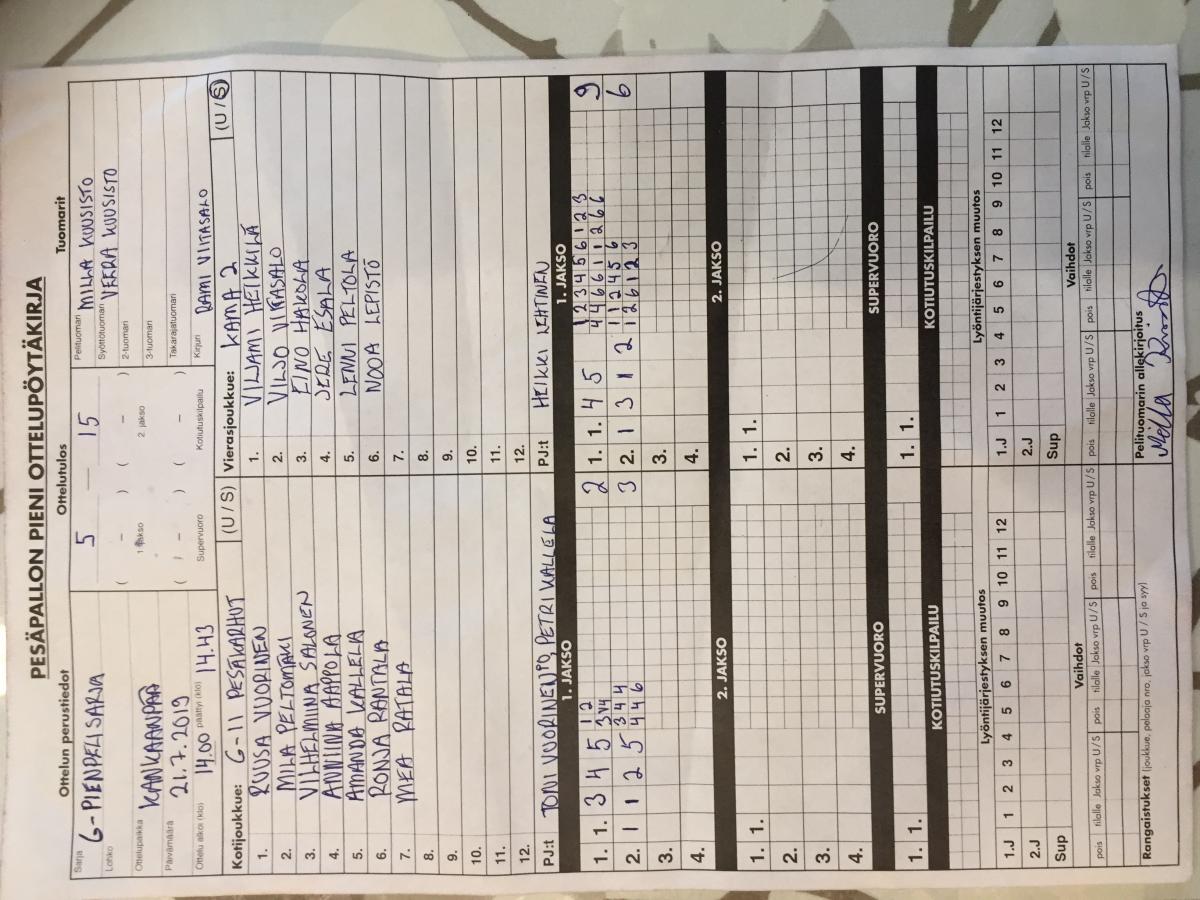 PESÄPALLON PIENI OTTELUPÖYTÄKIRJA
Ottelun perustiedot
Sarja G-PIENPELISARJA
Lohko
Ottelupaikka KANKAANPÄÄ
Päivämäärä 21.7.2019
Ottelu alkoi (klo) 14.00 päättyi (klo) 14.43
Ottelutulos
5 — 15
( – ) ( – )
1. jakso 2. jakso
( – ) ( – )
Supervuoro Kotiutuskilpailu
Tuomarit
Pelituomari MILLA KUUSISTO
Syöttötuomari VEERA KUUSISTO
2-tuomari
3-tuomari
Takarajatuomari
Kirjuri RAMI VIITASALO
Kotijoukkue: G-11 PESÄKARHUT (U / S)
1. RUUSA VUORINEN
2. MILA PELTOMÄKI
3. VILHELMIINA SALONEN
4. ANNIINA AAPPOLA
5. AMANDA KALLELA
6. RONJA RANTALA
7. MEA RATALA
8.
9.
10.
11.
12.
PJ:t TONI VUORINEN, PETRI KALLELA
Vierasjoukkue: KAMA 2 (U / S)
1. VILJAMI HEIKKILÄ
2. VILJO VIITASALO
3. EINO HAKOLA
4. JERE ESALA
5. LENNI PELTOLA
6. NOOA LEPISTÖ
7.
8.
9.
10.
11.
12.
PJ:t HEIKKI LEHTINEN
1. JAKSO
1 2
1. 1. 3 4 5 2
3 4 4
2. 1 1 2 5 4 4 6 3
3.
4.
1. JAKSO
1 2 3 4 5 6 1 2 3
1. 1. 4 5 4 4 6 6 1 1 2 6 6 9
1 1 2 4 5 6
2. 1 3 1 2 1 2 6 1 2 3 6
3.
4.
2. JAKSO
1. 1.
2.
3.
4.
2. JAKSO
1. 1.
2.
3.
4.
SUPERVUORO
1. 1.
SUPERVUORO
1. 1.
KOTIUTUSKILPAILU
KOTIUTUSKILPAILU
Lyöntijärjestyksen muutos
1.J 1 2 3 4 5 6 7 8 9 10 11 12
2.J
Sup
Lyöntijärjestyksen muutos
1.J 1 2 3 4 5 6 7 8 9 10 11 12
2.J
Sup
Vaihdot
pois tilalle Jakso vrp U / S pois tilalle Jakso vrp U / S pois tilalle Jakso vrp U / S
Vaihdot
pois tilalle Jakso vrp U / S pois tilalle Jakso vrp U / S pois tilalle Jakso vrp U / S
Rangaistukset (joukkue, pelaaja nro, jakso vrp U / S ja syy)
Pelituomarin allekirjoitus
Milla